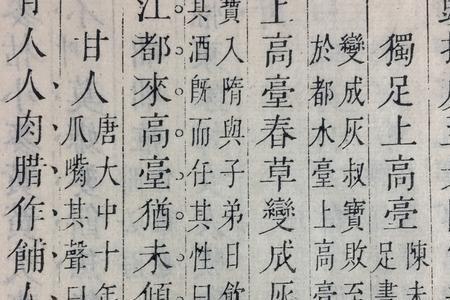 獨足上高臺
陳未
足書
變成灰叔寶敗至
於都水臺上高臺
上高臺春草變成灰
寶入隋與子弟日飲
其酒旣而任其性曰
江都來高臺猶未傾
甘人
唐大中十年
爪嘴其聲曰
人人肉腊作餔人